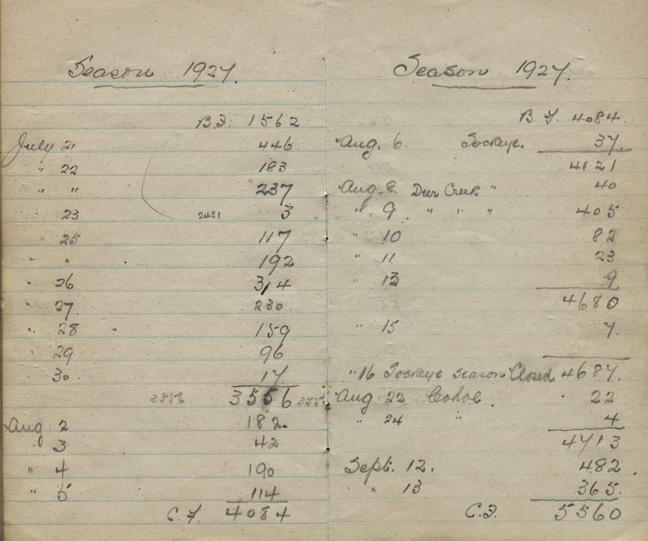 Season 1927.
B.F. 1562
July 21 446
" 22 183
" " 237
" 23 2431 3
" 25 117
" " 192
" 26 314
" 27 230
" 28 " 159
" 29 96
" 30 17
3556
Aug 2 182
" 3 42
" 4 190
" 5 114
C.F. 4084
Season 1927.
B.F. 4084.
Aug. 6. Sockeye. 37.
4121
Aug. 8. Deer Creek " 40
" 9 " " " 405
" 10 82
" 11 23
" 13 9
4680
" 15 7.
" 16 Sockeye season Closed 4687.
Aug 22 Cohoe. 22
" 24 " 4
4713
Sept. 12. 482.
" 13 365.
C.F. 5560